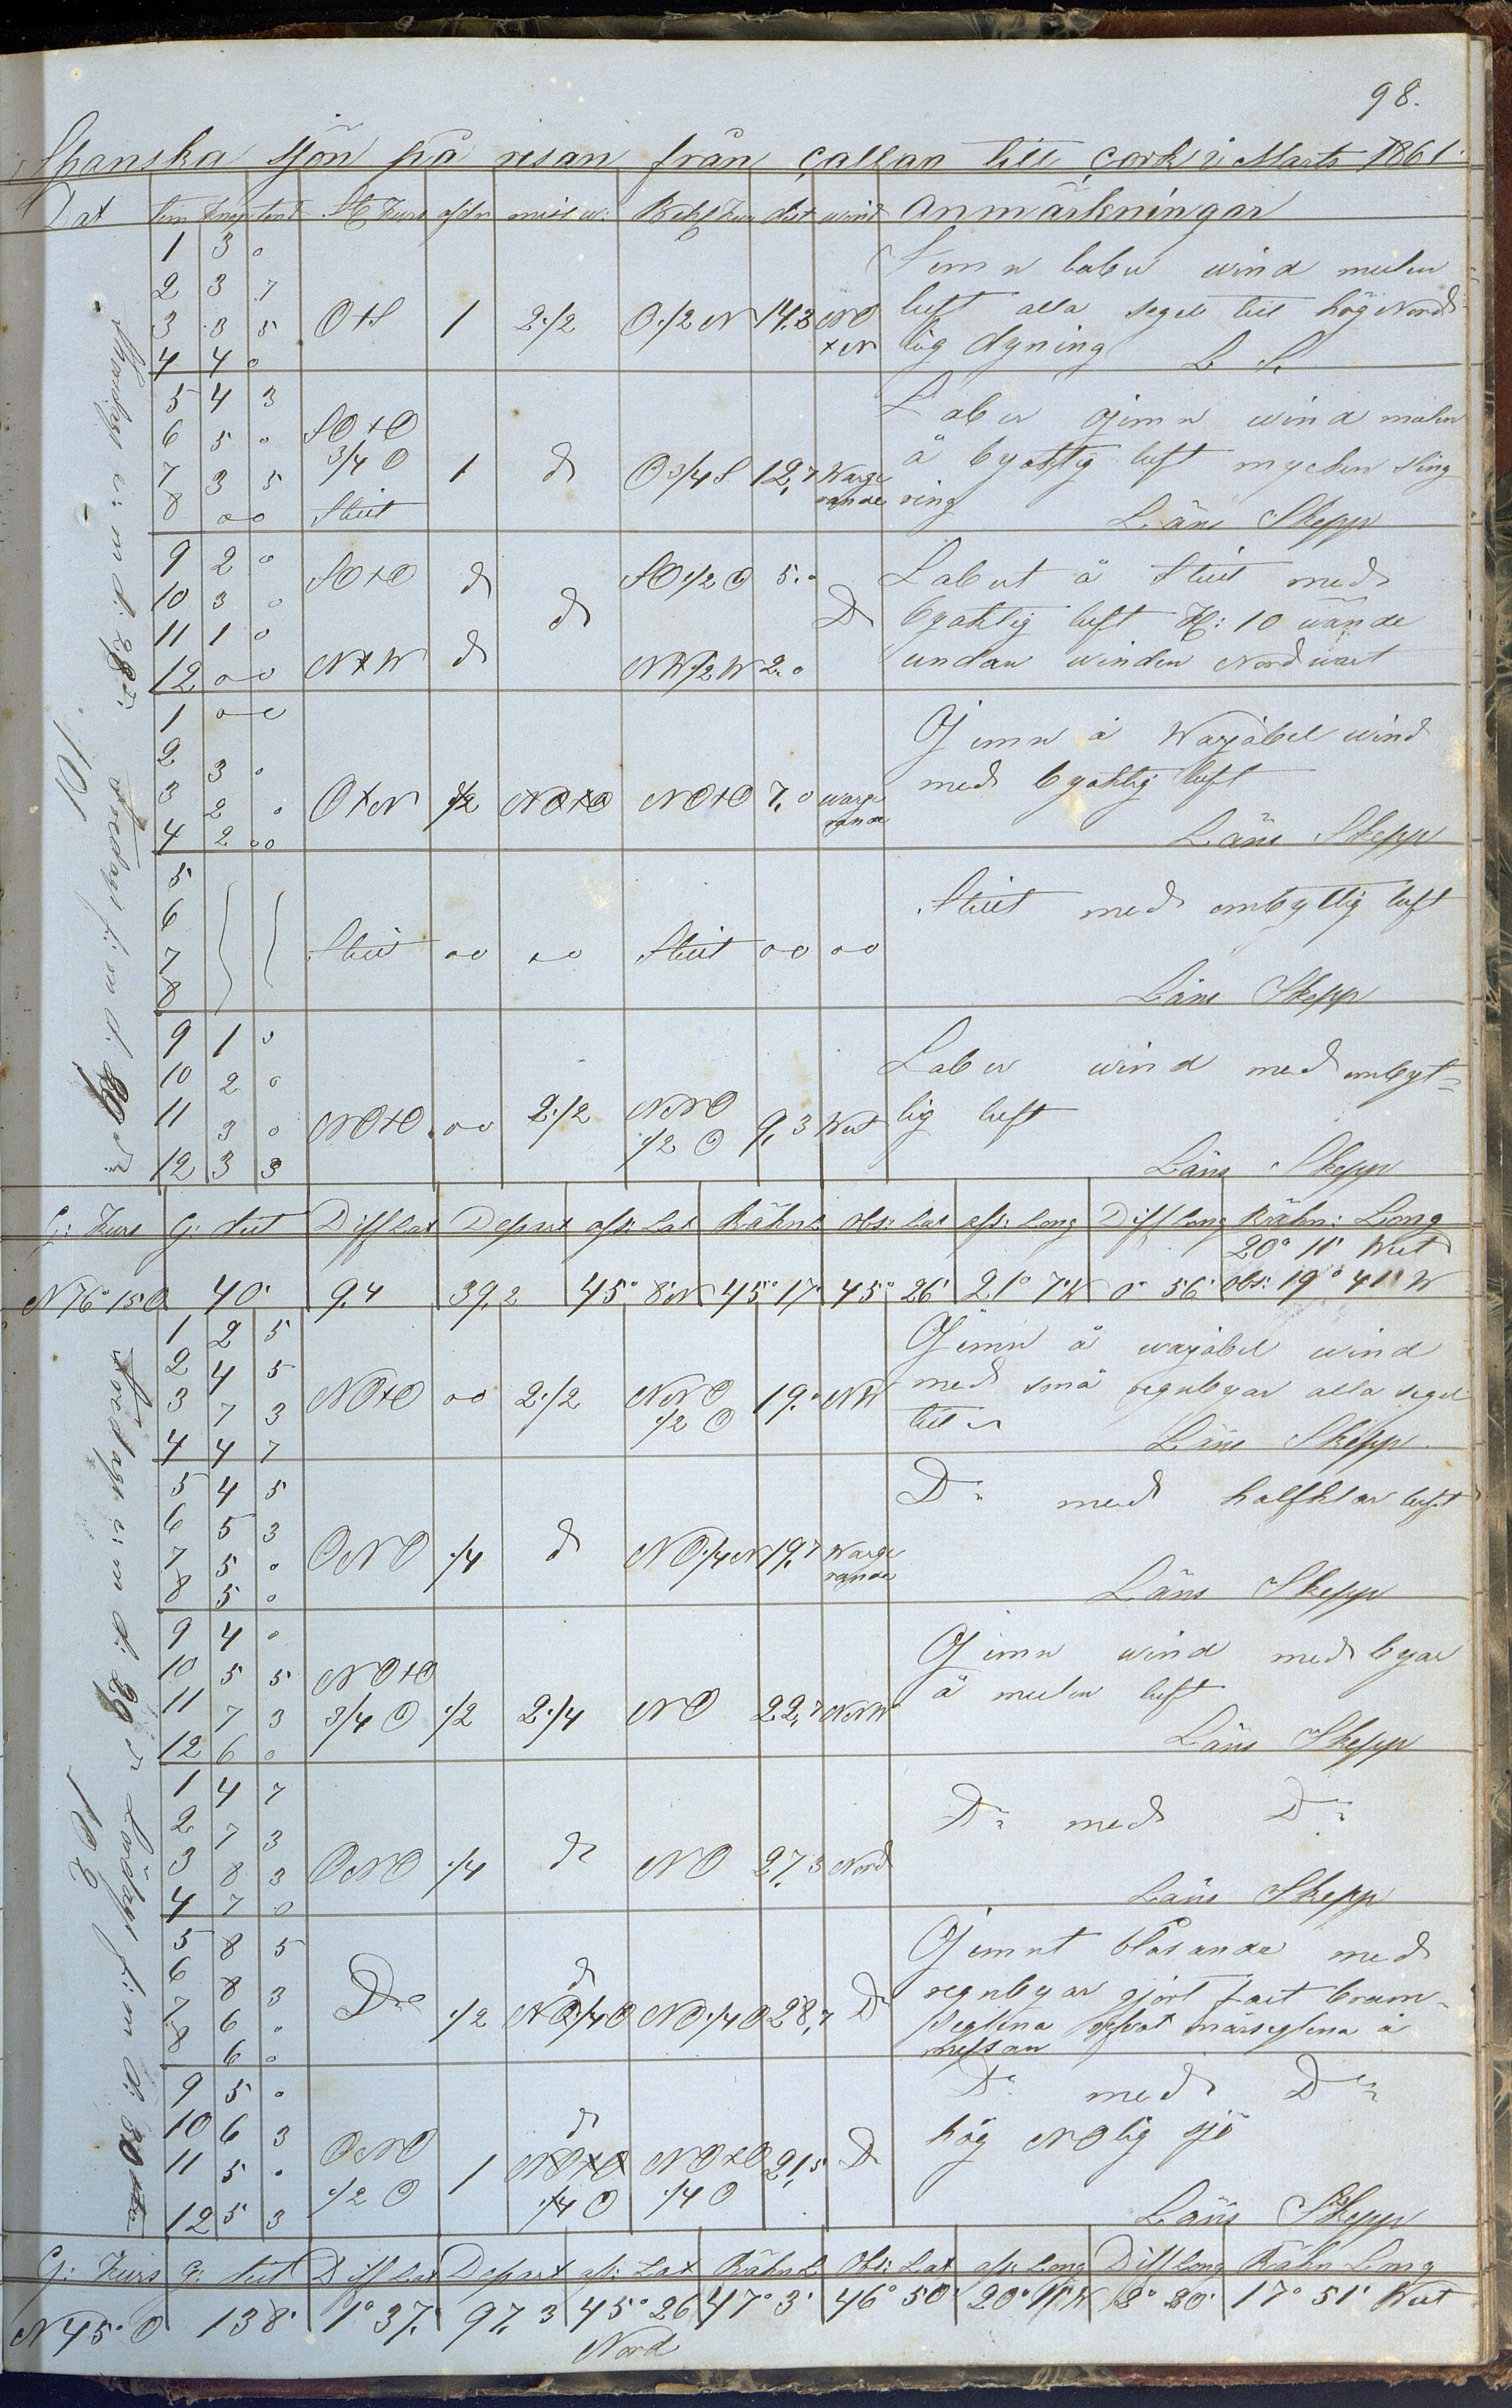 98.
Spanska sjön på resan från Callao till Cork i Marts 1861.
Dat tim knop tend St Kurs afdr misw: Beh Kur dist wind Anmärkningar
Thorsdagl e: m d: 28de Fredagl f: m d. 29de
101
1 3 0
Jemn laber wind mulen
2 3 7
3 3 5 O+S 1 2.1/2 O.1/2 N 14,2 NO luft alla segel till hög Nord-
4 4 0 +N lig dyning L S.
5 4 3
Laber ojemn wind mulen
6 5 0 SO+O
3/4 O 1 d O 3/4 S 12,7 Warge å byaktig luft mycken sling
7 3 5 rande ring
8 00 Stiit Läns Skepp
9 2 0 SO+O d d SO.1/2 O 5.0 D Labert å Stiit med
10 3 0 byaktig luft Kl: 10 wände
11 1 0
12 00 N+W d NW.1/2 W 2.0 undan winden Nordwart
1 00
Ojemn å Warjabel wind
2 3 0 med byaktig luft
3 2 0 O+N 1/2 NO+O NO+O 7,0 warge
rande
4 2 00 Läns Skepp
5
6 Stiit med ombyttlig luft
7 Stiit 00 00 Stiit 00 00
8 Läns Skepp
9 1 0
Laber wind med ombyt=
10 2 0
11 3 0 NO+O 00 2.1/2 NNO 9,3 West lig luft
1/2 O
12 3 3 Läns Skepp
G: Kurs G: dist Diff Lat Depart afs: Lat Räkn L Obs: Lat afs: Long Diff Long Räkn: Long
20° 11' West
N 76° 15 O 40' 9,4 39,2 45° 8' N 45° 17' 45° 26' 21° 7' W 0° 56' obs: 19° 41' W
Fredagl e: m d: 29de Lördagl f: m d: 30te
102
1 2 5
Ojemn å warjabel wind
2 4 5
3 7 3 NO+O 00 2.1/2 NNO 19.0 NW med små regnbyar alla segel
1/2 O till
4 4 7 Läns Skepp
5 4 5
Do med halfklar luft
6 5 3
7 5 0 ONO 1/4 d NO.1/4 N 19,7 Warge
rande
8 5 0 Läns Skepp
9 4 0
Ojemn wind med byar
10 5 5 NO+O å mulen luft
11 7 3 3/4 O 1/2 2.1/4 NO 22,7 NNW
12 6 0 Läns Skepp
1 4 7
Do med Do
2 7 3
3 8 3 ONO 1/4 d NO 27,3 Nord
4 7 0 Läns Skepp
5 8 5
Ojemnt blåsande med
6 8 3 d regnbyar gjort fast bram-
7 6 0 Do 1/2 NO 1/4 O NO.1/4 O 28,7 D seglena refvat märseglena å
8 6 0 messan
9 5 0
Do med Do
10 6 3 d hög NOlig sjö
11 5 0 ONO 1 NO+O NO+O 21,5 D
12 5 3 1/2 O 1/4 O 1/4 O Läns Skepp
G: Kurs G: dist Diff Lat Depart afs: Lat Räkn L Obs: Lat afs: Long Diff Long Räkn Long
N 45° O 138' 1° 37' 97,3 45° 26 47° 3' 46° 50' 20° 11' W 2° 20' 17° 51' West
Nord